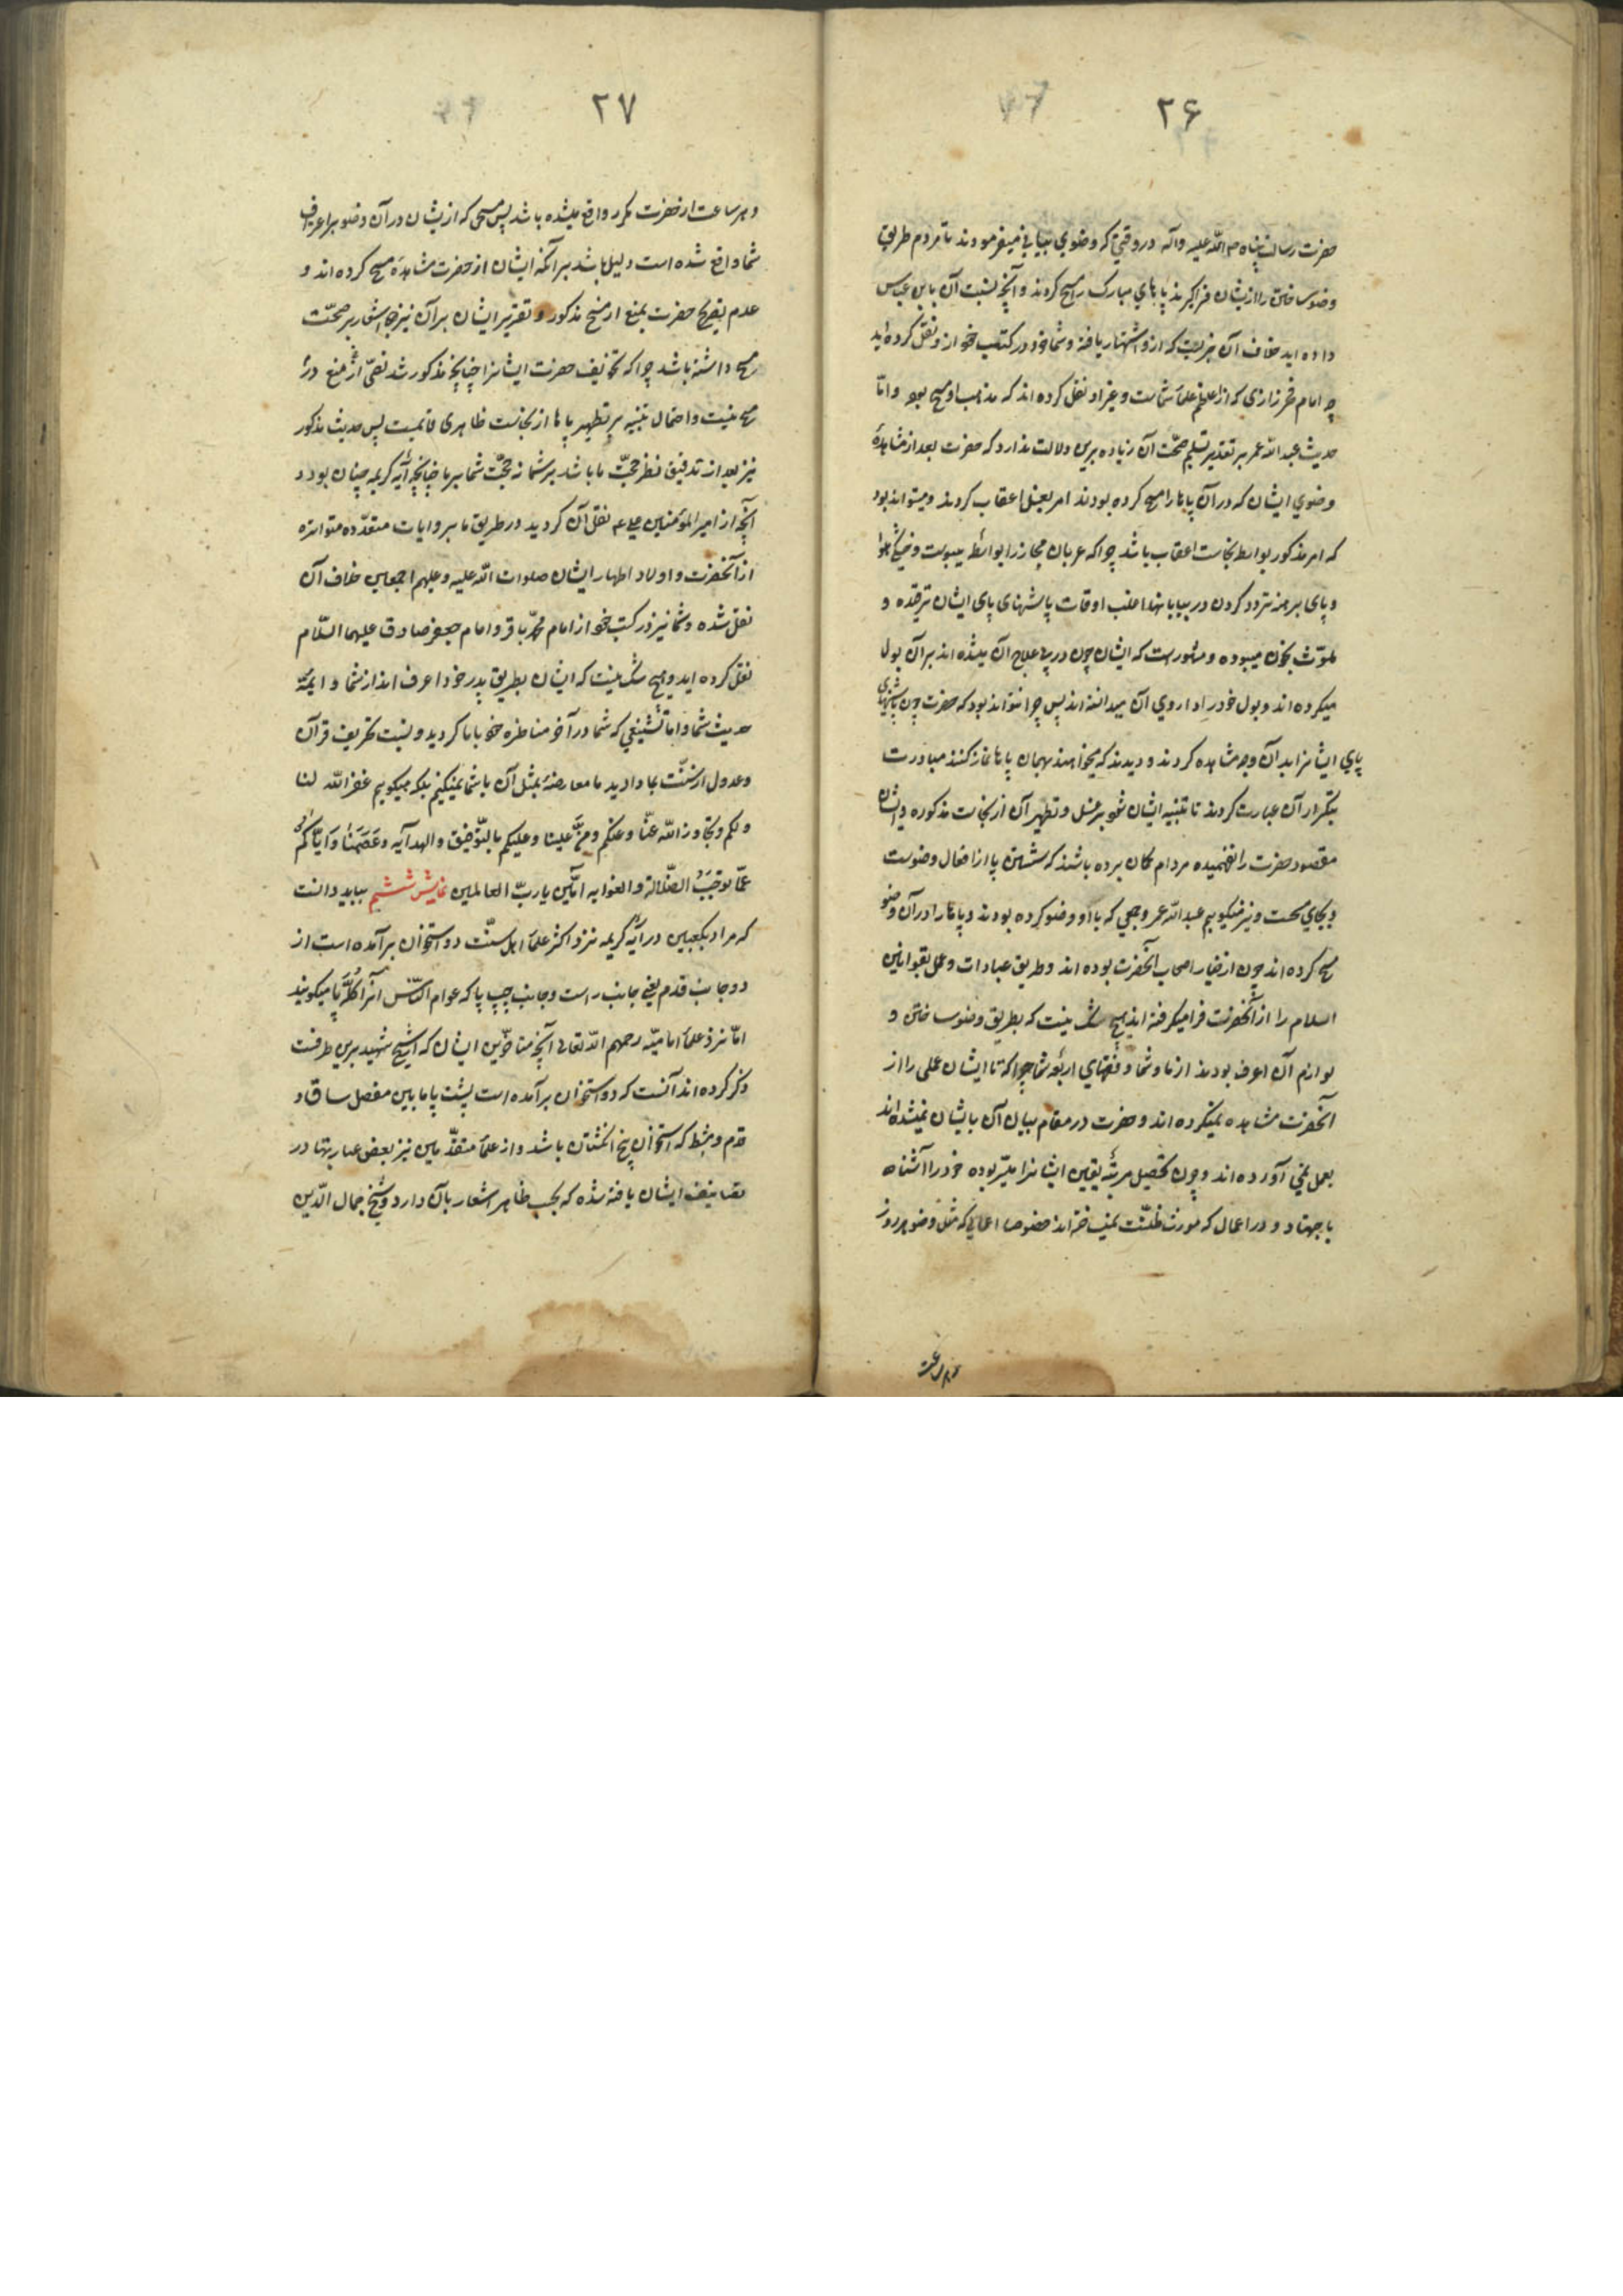 ۲۶
حضرت رسالت پناه صلی الله علیه واله در وقتی که وضوی بیانی میفرمودند تا مردم طریق
وضو ساختن را از ایشان فرا گیرند پاهای مبارک را مسح کردند و آنچه نسبت آن باین عباس
داده اید خلاف آن چیزیست که ازو اشتهار یافته و شما خود در کتب خود ازو نقل کرده اید
چه امام فخر رازی که از اعاظم علماء شماست و غیر او نقل کرده اند که مذهب او مسح بود و امّا
حدیث عبد الله عمر بر تقدیر تسلیم صحّت آن زیاده برین دلالت ندارد که حضرت بعد از مشاهدهٔ
وضوی ایشان که در آن پاها را مسح کرده بودند امر بغسل اعقاب کردند و میتواند بود
که امر مذکور بواسطه نجاست اعقاب باشد چرا که عربان حجاز را بواسطه یبوست و خشکی هوا
و پای برهنه تردد کردن در بیابانها اغلب اوقات پاشنهای پای ایشان ترقیده و
ملوّث بخون میبوده و مشهور است که ایشان چون در پی علاج آن میشده اند بر آن بول
میکرده اند و بول خود را داروی آن میدانسته اند پس چرا نتواند بود که حضرت چون پاشنهای
پای ایشانرا بدان وجه مشاهده کردند و دیدند که میخواهند بهمان پاها نماز کنند مبادرت
بتکرار آن عبارت کردند تا تنبیه ایشان شود بر غسل و تطهیر آن از نجاست مذکوره و ایشان
مقصود حضرت را نفهمیده مردم گمان برده باشند که شستن پا از افعال وضوست
و بجای مسحست و نیز میگوییم عبد الله عمر و جمعی که با او وضو کرده بودند و پاها را در آن وضو
مسح کرده اند چون از خیار اصحاب آنحضرت بوده اند و طریق عبادات و عمل بقوانین
اسلام را از آنحضرت فرا میگرفته اند هیچ شک نیست که بطریق وضو ساختن و
لوازم آن اعرف بودند از ما و شما و فقهای اربعهٔ شما چرا که تا ایشان عملی را از
آنحضرت مشاهده نمیکرده اند و حضرت در مقام بیان آن بایشان نمیشده اند
بعمل نمی آورده اند و چون تحصیل مرتبهٔ یقین ایشانرا میسّر بوده خود را آشنا
باجتهاد و در اعمال که مورث ظنّست نمیساخته اند خصوصا اعمالی که مثل وضو هر روز
و هر ساعت
۲۷
و هر ساعت از حضرت مکرر واقع میشده باشد پس مسحی که ازیشان در آن وضو بر اعتراف
شما واقع شده است دلیل باشد بر آنکه ایشان از حضرت مشاهدهٔ مسح کرده اند و
عدم تصریح حضرت بمنع از مسح مذکور و تقریر ایشان بر آن نیز اشعار بر صحّت
مسح داشته باشد چرا که تخویف حضرت ایشانرا چنانچه مذکور شد نصّ از منع در
مسح نیست و احتمال تنبیه بر تطهیر پاها از نجاست ظاهری قائمست پس حدیث مذکور
نیز بعد از تدقیق نظر حجّت ما باشد بر شما نه حجّت شما بر ما چنانچه آیه کریمه چنان بود و
آنچه از امیر المؤمنین علی ع نقل آن کردید در طریق ما بروایات متعدّده متواتره
از آنحضرت و اولاد اطهار ایشان صلوات الله علیه و علیهم اجمعین خلاف آن
نقل شده و شما نیز در کتب خود از امام محمّد باقر و امام جعفر صادق علیهما السّلام
نقل کرده اید و هیچ شک نیست که ایشان بطریق پدر خود اعرف اند از شما و ایمهٔ
حدیث شما و اما تشنیعی که شما در آخر مناظره خود با ما کردید و نسبت تحریف قرآن
و عدول از سنّت بما دادید ما معارضهٔ بمثل آن با شما نمیکنیم بلکه میگوییم غفر الله لنا
و لکم و تجاوز الله عنّا و عنکم و منّ علینا و علیکم بالتّوفیق و الهدایه وَعَصَمَنَا وَ ایّاکُم
عمّا یوجبُ الضّلالة و الغوایه آمّین یا ربّ العالمین نمایش ششم بباید دانست
که مراد بکعبین در آیهٔ کریمه نزد اکثر علماء اهل سنّت دو استخوان برآمده است از
دو جانب قدم یعنی جانب راست و جانب چپ پا که عوام النّاس آنرا کلّهٔ پا میگویند
امّا نزد علماء امامیّه رحمهم الله تعالی آنچه متأخّرین ایشان که شیخ شهید برین طرفست
ذکر کرده اند آنست که دو استخوان برآمده است پشت پا مابین مفصل ساق و
قدم و مشط که استخوان پنج انگشتان باشد و از علماء متقدّمین نیز بعض عبارتها در
تصانیف ایشان یافته شده که بحسب ظاهر اشعار بآن دارد و شیخ جمال الدّین